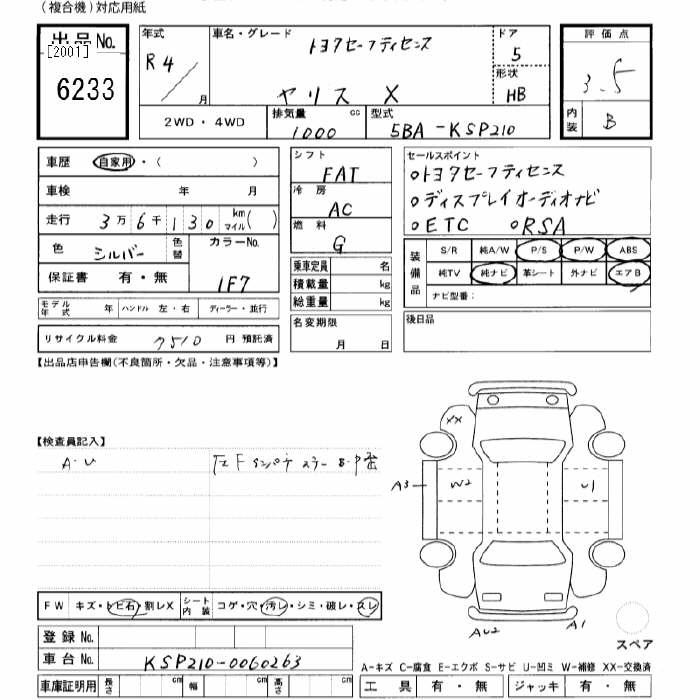 (複合機)対応用紙
出品No.
[2001]
6233
年式 R4 / 月
車名・グレード トヨタセーフティセンス
ヤリス X
ドア 5
形状 HB
2WD・4WD
排気量 cc 1000
型式 5BA-KSP210
評価点 3.5
内装 B
車歴 自家用・( )
車検 年 月
走行 3万6千130 km マイル( )
色 シルバー 色替
カラーNo. 1F7
保証書 有・無
モデル年式 年 ハンドル 左・右 ディーラー・並行
リサイクル料金 7510 円 預託済
シフト FAT
冷房 AC
燃料 G
乗車定員 名
積載量 kg
総重量 kg
名変期限
月 日
セールスポイント
○トヨタセーフティセンス
○ディスプレイオーディオナビ
○ETC ○RSA
装備品
S/R 純A/W P/S P/W ABS
純TV 純ナビ 革シート 外ナビ エアB
ナビ型番:
後日品
【出品店申告欄(不良箇所・欠品・注意事項等)】
【検査員記入】
A・U
XX
A3 W2 U1
AU2 A1
スペア
FW キズ・トビ石・割レX
シート内装 コゲ・穴・汚レ・シミ・破レ・スレ
登録No.
車台No. KSP210-0060263
車庫証明用 長さ cm 幅 cm 高さ cm
A-キズ C-腐食 E-エクボ S-サビ U-凹ミ W-補修 XX-交換済
工具 有・無 ジャッキ 有・無